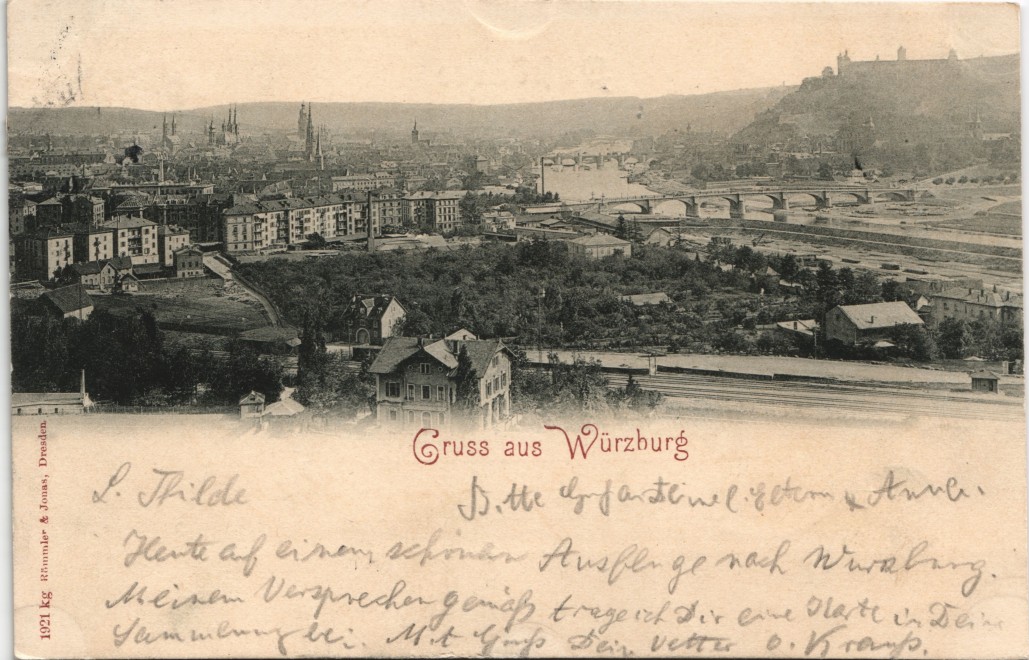 Gruss aus Würzburg
L. Thilde
Bitte Eltern Annl.
Heute auf einem schönen Ausflenge nach Wurzburg.
Meinem Versprechen gemäß trage ich Dir eine Karte in Deine
Sammlung bei. Mit Gruß Dein Vetter O. Krauß.
1921 kg Römmler & Jonas, Dresden